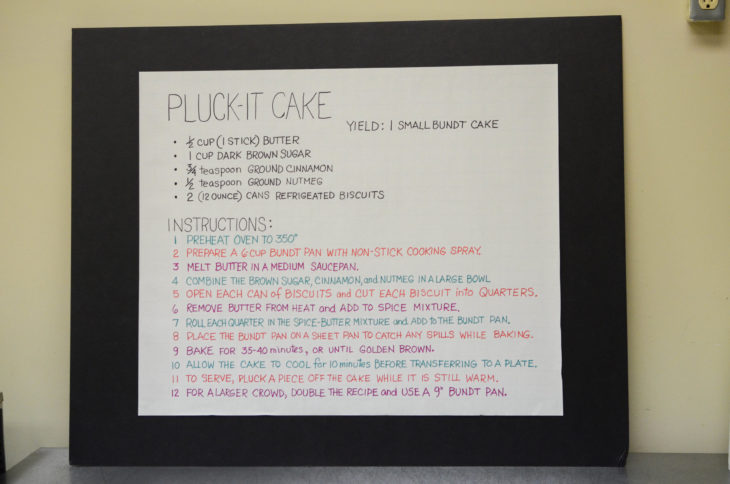 PLUCK-IT CAKE
YIELD: 1 SMALL BUNDT CAKE
• ½ CUP (1 STICK) BUTTER
• 1 CUP DARK BROWN SUGAR
• ¾ teaspoon GROUND CINNAMON
• ½ teaspoon GROUND NUTMEG
• 2 (12 OUNCE) CANS REFRIGEATED BISCUITS
INSTRUCTIONS:
1 PREHEAT OVEN TO 350°
2 PREPARE A 6 CUP BUNDT PAN WITH NON-STICK COOKING SPRAY.
3 MELT BUTTER IN A MEDIUM SAUCEPAN.
4 COMBINE THE BROWN SUGAR, CINNAMON, and NUTMEG IN A LARGE BOWL
5 OPEN EACH CAN of BISCUITS and CUT EACH BISCUIT into QUARTERS.
6 REMOVE BUTTER FROM HEAT and ADD to SPICE MIXTURE.
7 ROLL EACH QUARTER IN THE SPICE-BUTTER MIXTURE and ADD to THE BUNDT PAN.
8 PLACE THE BUNDT PAN ON A SHEET PAN TO CATCH ANY SPILLS WHILE BAKING.
9 BAKE FOR 35-40 minutes, OR UNTIL GOLDEN BROWN.
10 ALLOW THE CAKE TO COOL for 10 minutes BEFORE TRANSFERRING TO A PLATE.
11 TO SERVE, PLUCK A PIECE OFF THE CAKE WHILE IT IS STILL WARM.
12 FOR A LARGER CROWD, DOUBLE THE RECIPE and USE A 9" BUNDT PAN.